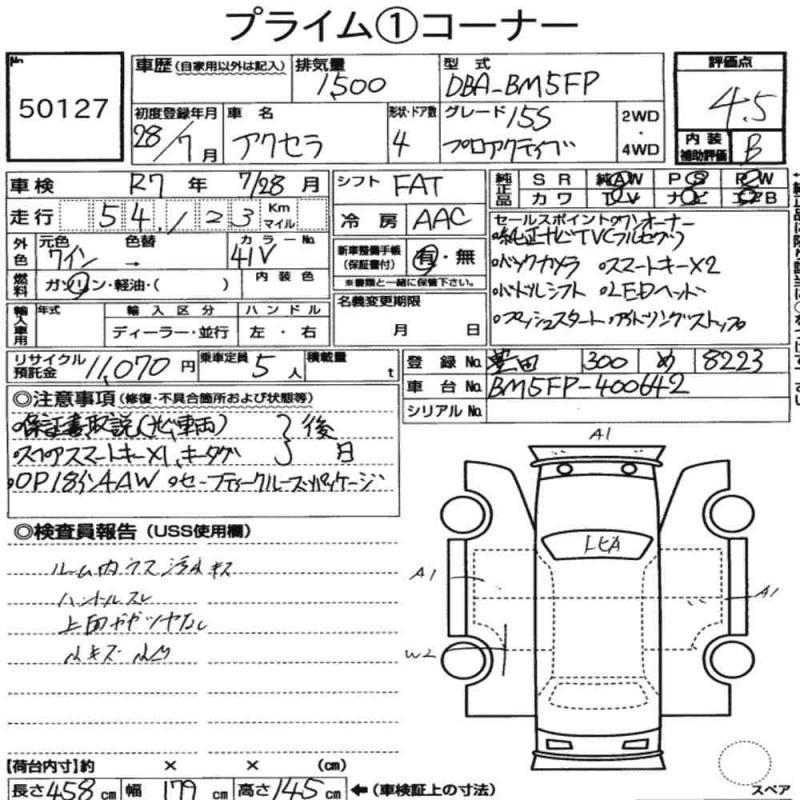 プライム①コーナー
No 50127
車歴 (自家用以外は記入) 排気量 1,500 型式 DBA-BM5FP
初度登録年月 28/7月 車名 アクセラ 形状・ドア数 4 グレード 15S プロアクティブ 2WD・4WD
評価点 4.5
内装補助評価 B
車検 R7年 7/28月 シフト FAT
純正品 SR 純AW PS PW
カワ TV ナビ エアB
走行 54,123 Km マイル 冷房 AAC
外色 元色 ワイン 色替 → カラーNo. 41V
新車整備手帳(保証書付) 有・無
※書類と一緒に保管下さい。
燃料 ガソリン・軽油・( ) 内装色
名義変更期限 月 日
輸入車用 年式 輸入区分 ハンドル
ディーラー・並行 左・右
セールスポイント ワンオーナー
・純正ナビTVCフルセグ
・バックカメラ ・スマートキー×2
・パドルシフト ・LEDヘッド
・プッシュスタート ・アイドリングストップ
リサイクル預託金 11,070円 乗車定員 5人 積載量 t
登録No. 豊田 300 め 8223
車台No. BM5FP-400642
シリアルNo.
◎注意事項 (修復・不具合箇所および状態等)
・保証書取説
・スペアスマートキー×1、キータグ 後日
・OP18インチAAW ・セーフティークルーズパッケージ
◎検査員報告 (USS使用欄)
ハンドルスレ
小キズ 小凹
A1
A1
A1
W2
【荷台内寸】約 × × (cm)
長さ 458cm 幅 179cm 高さ 145cm ←(車検証上の寸法)
スペア